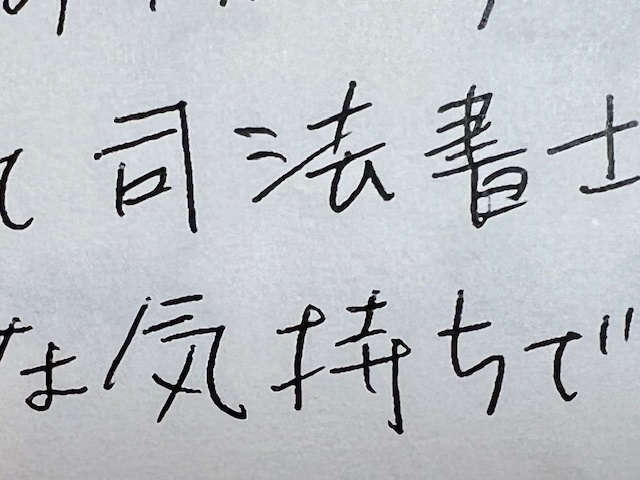 て司法書士
な気持ちで